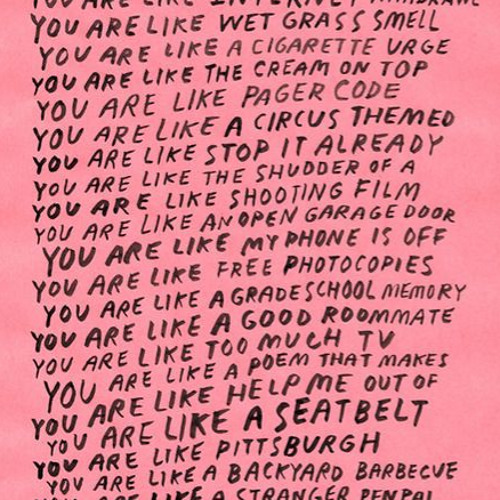 YOU ARE LIKE INTERNET WITHDRAWL
YOU ARE LIKE WET GRASS SMELL
YOU ARE LIKE A CIGARETTE URGE
YOU ARE LIKE THE CREAM ON TOP
YOU ARE LIKE PAGER CODE
YOU ARE LIKE A CIRCUS THEMED
YOU ARE LIKE STOP IT ALREADY
YOU ARE LIKE THE SHUDDER OF A
YOU ARE LIKE SHOOTING FILM
YOU ARE LIKE AN OPEN GARAGE DOOR
YOU ARE LIKE MY PHONE IS OFF
YOU ARE LIKE FREE PHOTOCOPIES
YOU ARE LIKE A GRADESCHOOL MEMORY
YOU ARE LIKE A GOOD ROOMMATE
YOU ARE LIKE TOO MUCH TV
YOU ARE LIKE A POEM THAT MAKES
YOU ARE LIKE HELP ME OUT OF
YOU ARE LIKE A SEATBELT
YOU ARE LIKE PITTSBURGH
YOU ARE LIKE A BACKYARD BARBECUE
YOU ARE LIKE A STRANGER PENPAL